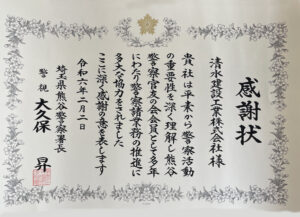 感謝状
清水建設工業株式会社様
貴社は平素から警察活動
の重要性を深く理解し熊谷
警察官友の会会員として多年
にわたり警察諸業務の推進に
多大な協力をされました
ここに深く感謝の意を表します
令和六年二月二日
埼玉県熊谷警察署長
警視 大久保 昇